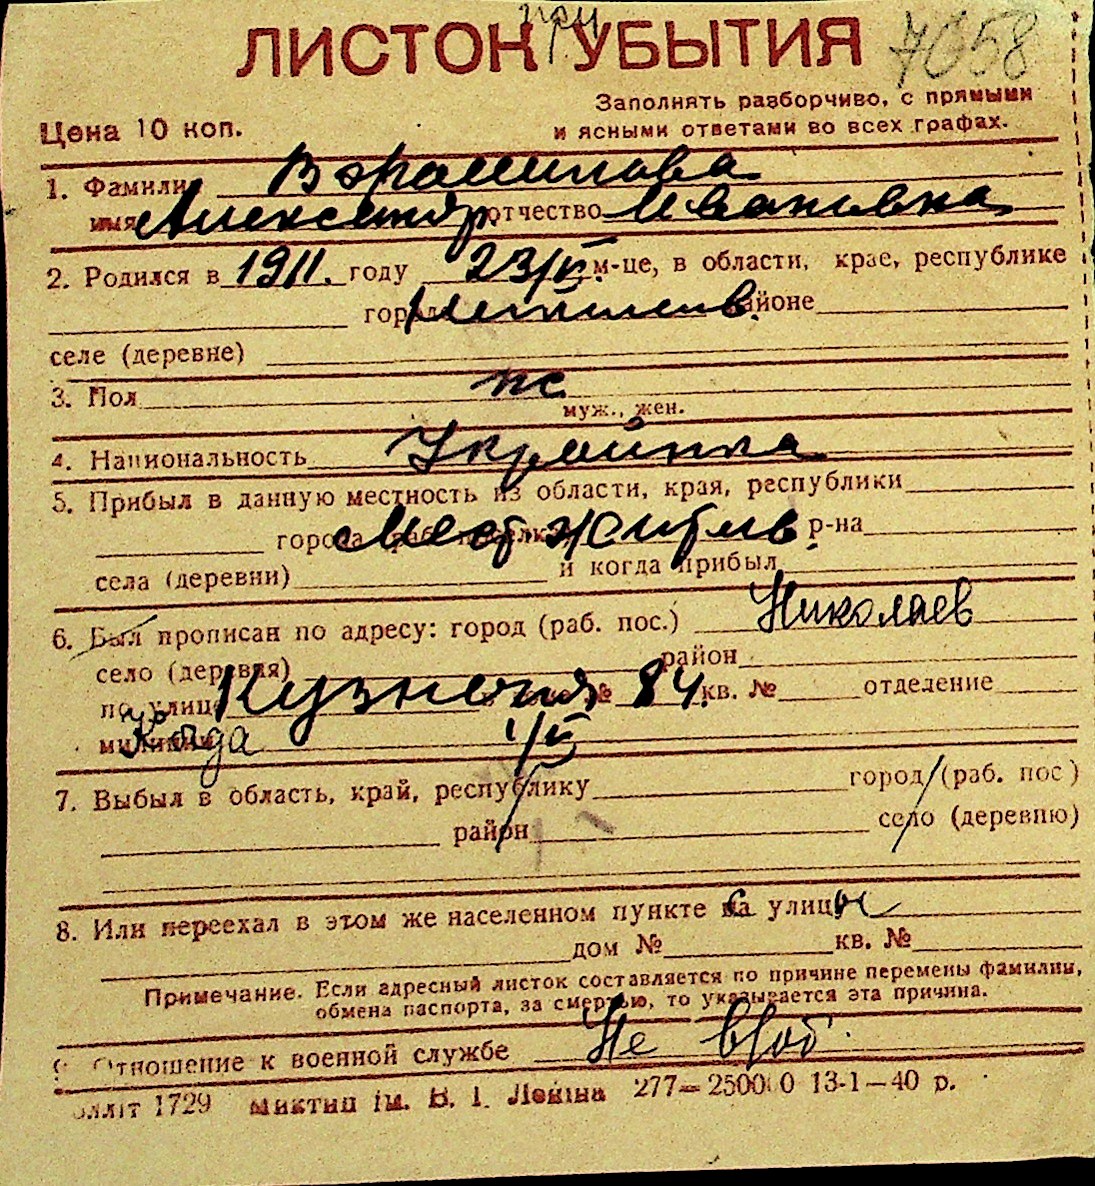 при
ЛИСТОК УБЫТИЯ 7058
Заполнять разборчиво, с прямыми
Цена 10 коп. и ясными ответами во всех графах.
1. Фамилия
имя Александр. отчество Ивановна
2. Родился в 1911. году 23/ м-це, в области, крае, республике
город районе
селе (деревне)
3. Пол
муж., жен.
4. Национальность Украинка
5. Прибыл в данную местность из области, края, республики
города (раб. поселка) Мест. жител. р-на
села (деревни) и когда прибыл
6. Был прописан по адресу: город (раб. пос.) Николаев
село (деревня) район
по улице № 84. кв. № отделение
милиции Когда
7. Выбыл в область, край, республику город (раб. пос)
район село (деревню)
8. Или переехал в этом же населенном пункте на улицы
дом № кв. №
Примечание. Если адресный листок составляется по причине перемены фамилии,
обмена паспорта, за смертью, то указывается эта причина.
9. Отношение к военной службе Не в/об.
1729 Миктип ім. В. І. Леніна 277—250000 13-1—40 р.